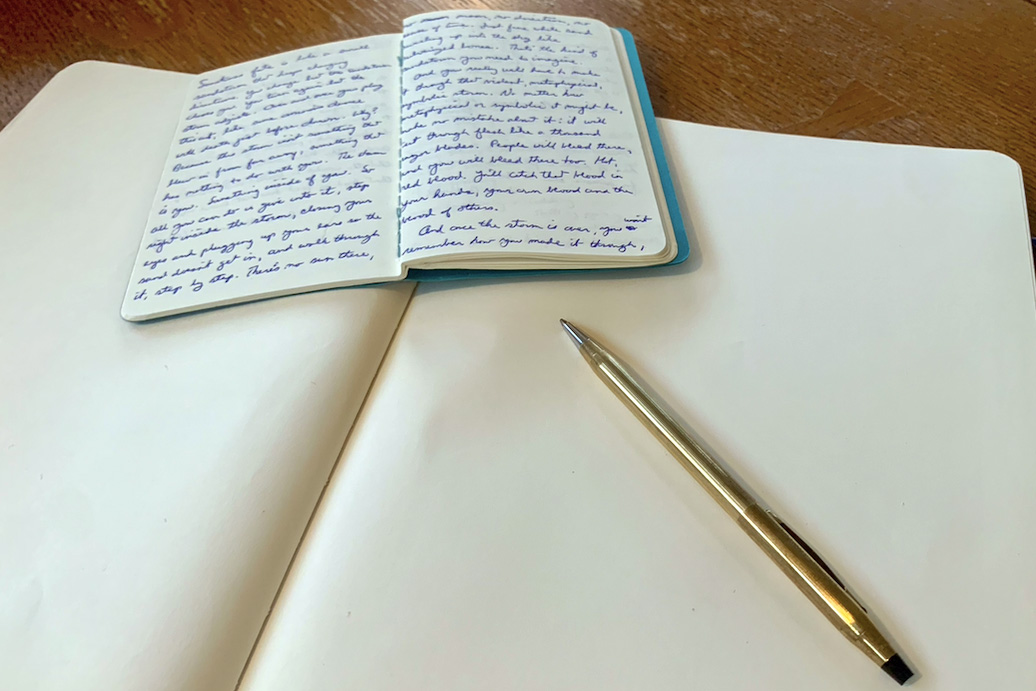 Sometimes fate is like a small
sandstorm that keeps changing
directions. You change but the sandstorm
chases you. You turn again, but the
storm adjusts. Over and over you play
this out, like some ominous dance
with death just before dawn. Why?
Because this storm isn't something that
blew in from far away, something that
has nothing to do with you. The storm
is you. Something inside of you. So
all you can do is give into it, step
right inside the storm, closing your
eyes and plugging up your ears so the
sand doesn't get in, and walk through
it, step by step. There's no sun there,
no moon, no direction, no
sense of time. Just fine white sand
swirling up into the sky like
pulverized bones. That's the kind of
sandstorm you need to imagine.
And you really will have to make
it through that violent, metaphysical,
symbolic storm. No matter how
metaphysical or symbolic it might be,
make no mistake about it: it will
cut through flesh like a thousand
razor blades. People will bleed there,
and you will bleed there too. Hot,
red blood. You'll catch that blood in
your hands, your own blood and the
blood of others.
And once the storm is over, you won't
remember how you made it through,